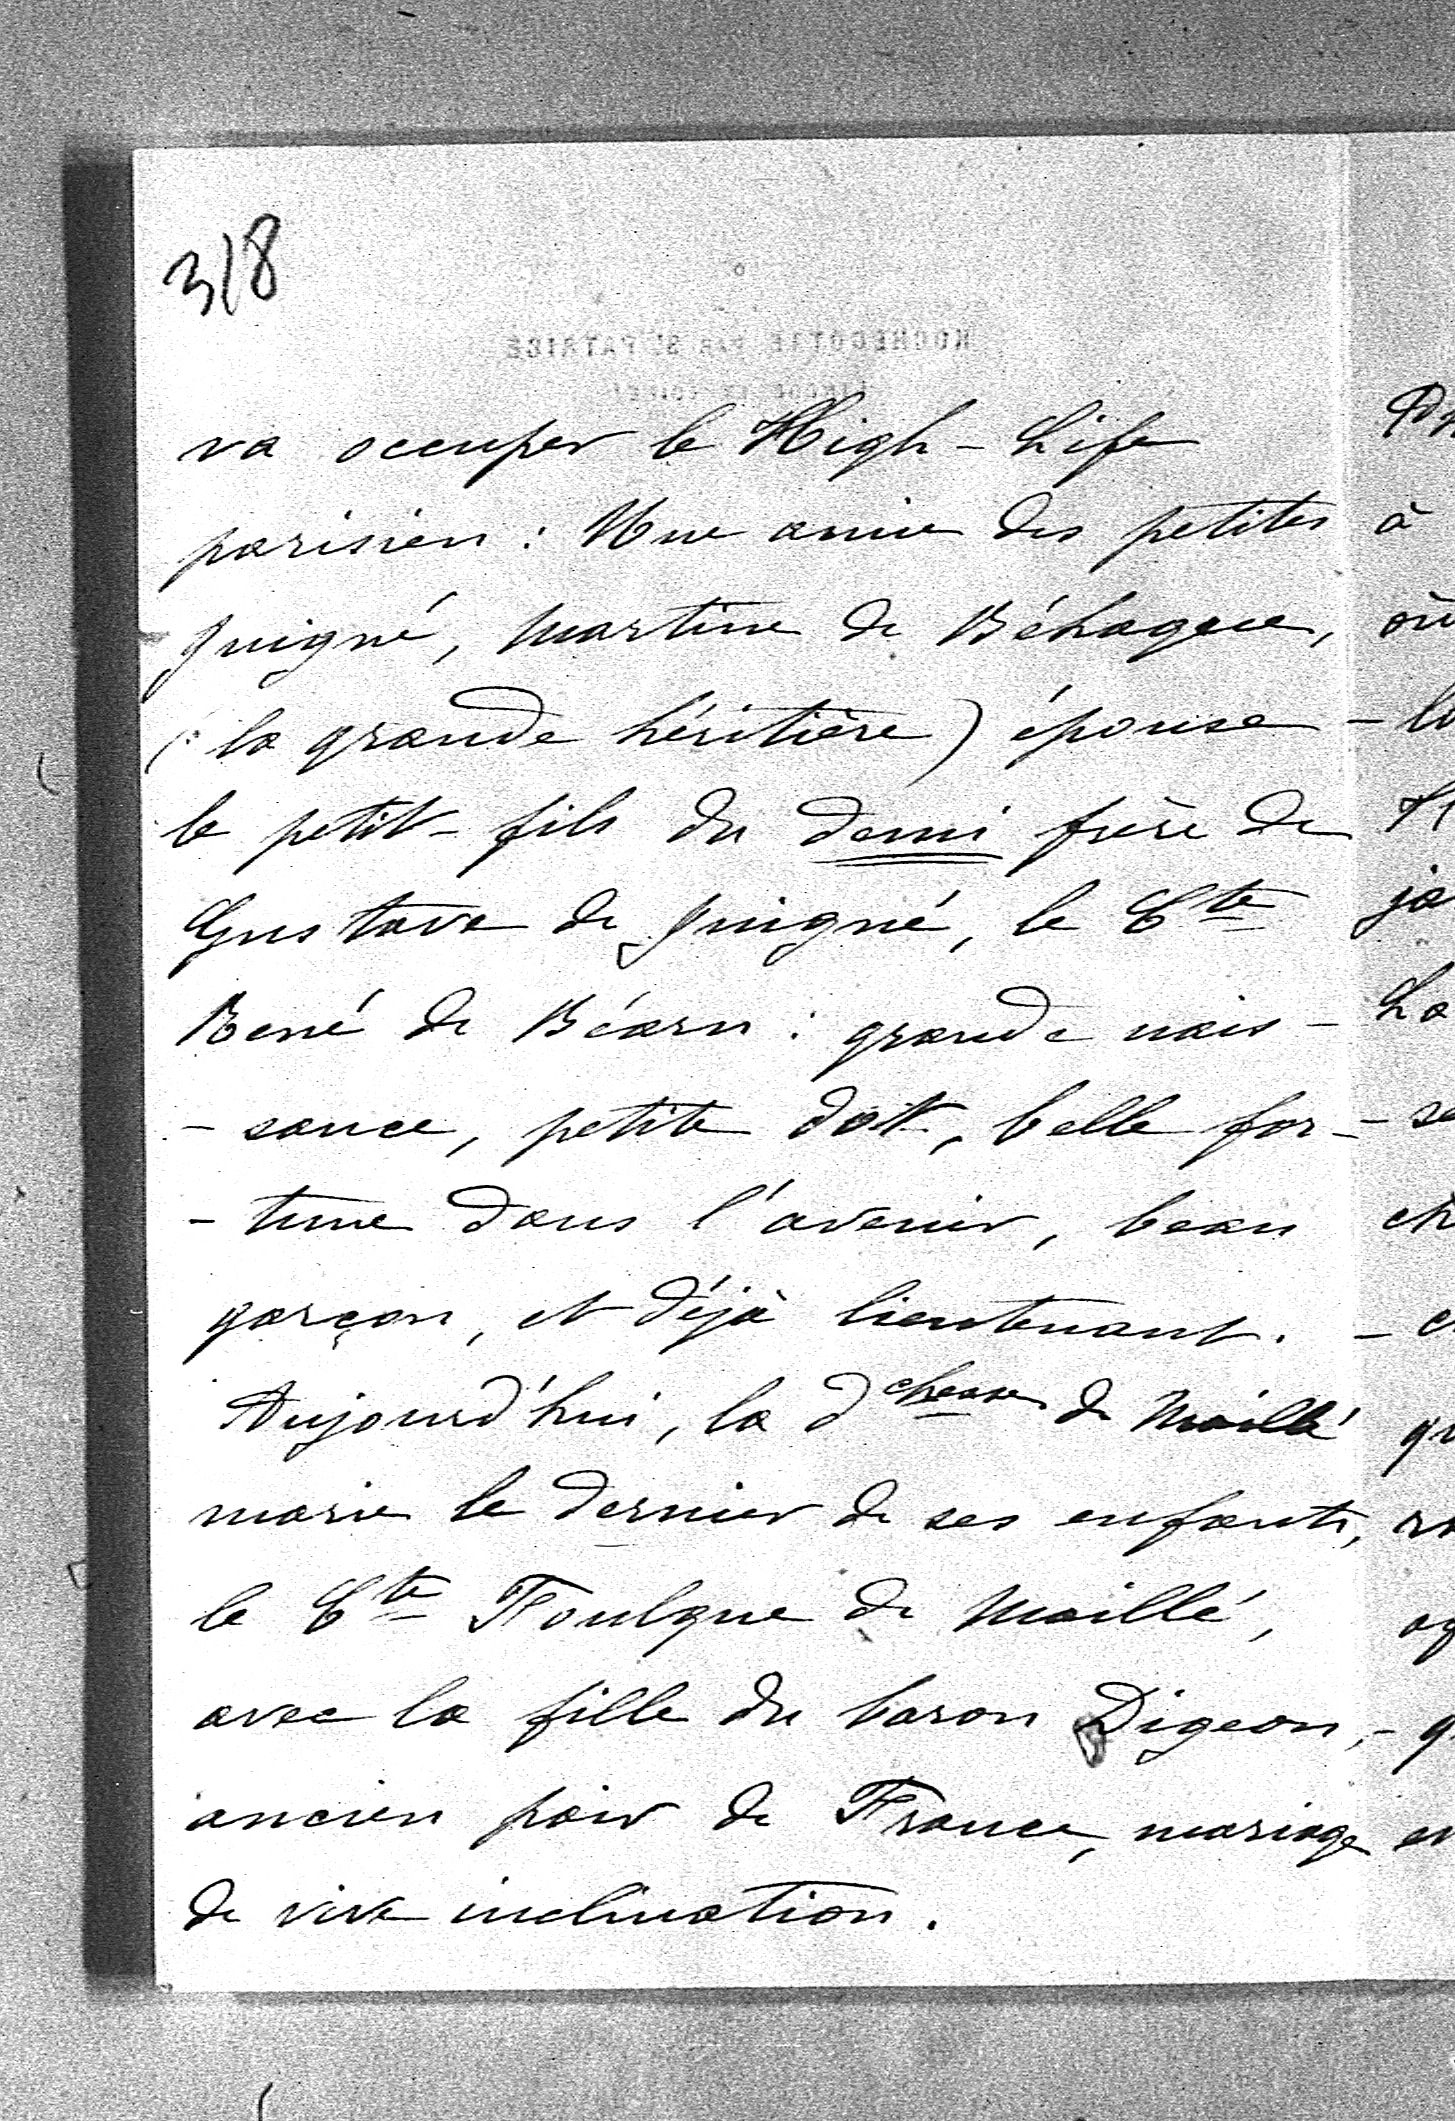 318
ROCHECOTTE PAR St PATRICE
va occuper le High-Life
parisien : Une amie des petites
Juigné, Martine de Béhague,
(la grande héritière) épouse
le petit-fils du demi frère de
Gustave de Juigné, le Cte
René de Béarn : grande nais-
-sance, petite dot, belle for-
-tune dans l'avenir, beau
garçon, et déjà lieutenant.
Aujourd'hui, la dchesse de Maillé
marie le dernier de ses enfants,
le Cte Foulque de Maillé,
avec la fille du baron Digeon,
ancien pair de France, mariage
de vive inclination.